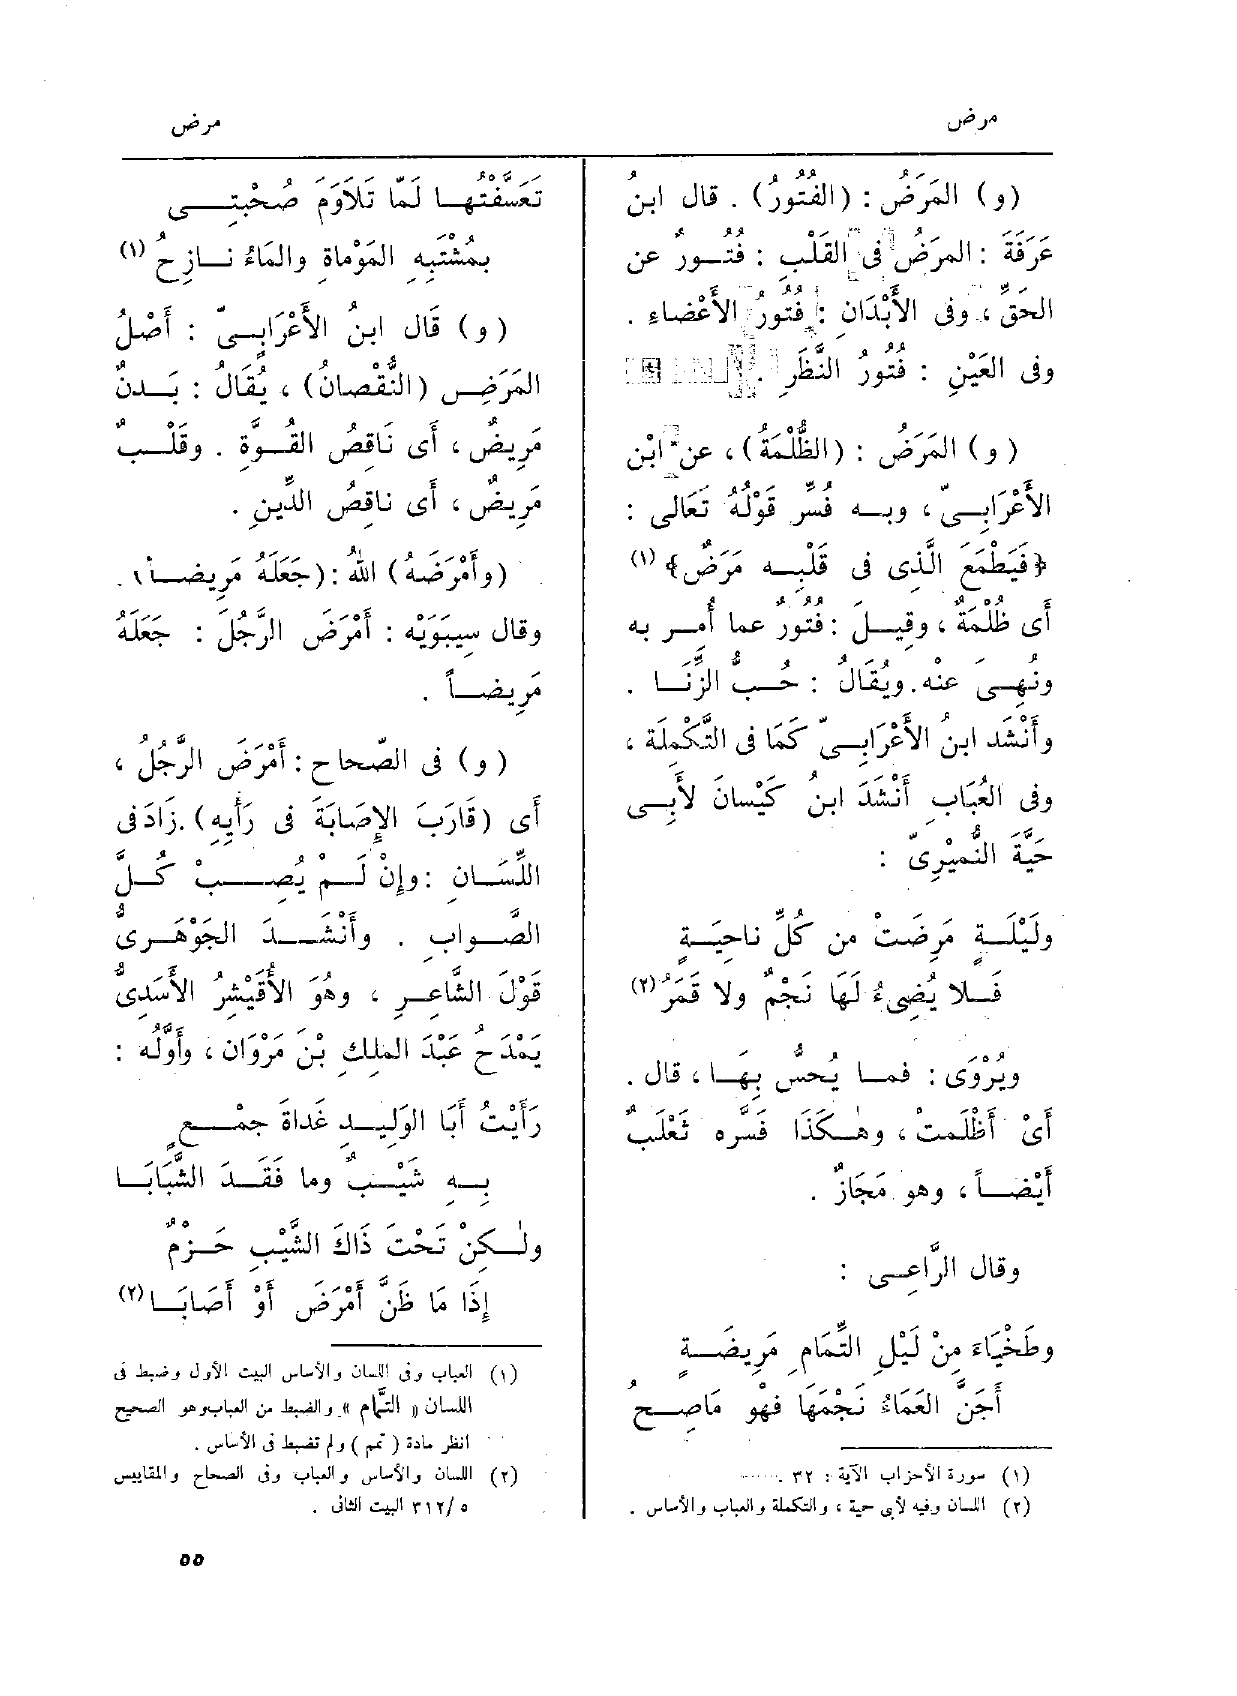 مرض
مرض
(و) المَرَضُ : (الفُتُورُ) . قال ابنُ
عَرَفَةَ : المَرَضُ فى القَلْبِ : فُتُورٌ عن
الحَقِّ ، وفى الأَبْدَانِ : فُتُورُ الأَعْضاء .
وفى العَيْنِ : فُتُورُ النَّظَرِ .
(و) المَرَضُ : (الظُّلْمَةُ) ، عن ابْن
الأَعْرَابِىّ ، وبه فُسِّر قَوْلُهُ تَعَالى :
﴿فَيَطْمَعَ الَّذِى فى قَلْبِه مَرَضٌ﴾ (١)
أَى ظُلْمَةٌ ، وقِيلَ : فُتُورٌ عما أُمِر به
ونُهِىَ عنْه . ويُقَالُ : حُبُّ الزِّنَا .
وأَنْشَد ابنُ الأَعْرَابِىّ كَمَا فى التَّكْمِلَة ،
وفى العُبَاب أَنْشَدَ ابنُ كَيْسانَ لأَبِى
حَيَّةَ النُّمَيْرِىّ :
ولَيْلَةٍ مَرِضَتْ من كُلِّ ناحِيَةٍ
فَلا يُضِىءُ لَهَا نَجْمٌ ولا قَمَرُ (٢)
ويُرْوَى : فما يُحَسُّ بِهَا ، قال .
أَىْ أَظْلَمت ، وهٰكَذَا فَسَّره ثَعْلَبٌ
أَيْضاً ، وهو مَجَازٌ .
وقال الرَّاعِى :
وطَخْيَاءَ مِنْ لَيْلِ التِّمَامِ مَرِيضَةٍ
أَجَنَّ العَمَاءُ نَجْمَهَا فهْو مَاصِحُ
(١) سورة الأحزاب الآية : ٣٢ .
(٢) اللسان وفيه لأبى حية ، والتكملة والعباب والأساس .
تَعَسَّفْتُها لَمَّا تَلاَوَمَ صُحْبَتِى
بمُشْتَبِهِ المَوْمَاةِ والمَاءُ نازِحُ (١)
(و) قَال ابنُ الأَعْرَابِىّ : أَصْلُ
المَرَضِ (النُّقْصانُ) ، يُقَالُ : بَدنٌ
مَرِيضٌ ، أَى نَاقِصُ القُوَّة . وقَلْبٌ
مَرِيضٌ ، أَى ناقِصُ الدِّينِ .
(وأَمْرَضَهُ) اللهُ : (جَعَلَهُ مَرِيضاً) .
وقال سِيبَوَيْه : أَمْرَضَ الرَّجُلَ : جَعَلَهُ
مَرِيضاً .
(و) فى الصّحاح : أَمْرَضَ الرَّجُلُ ،
أَى (قَارَبَ الإِصَابَةَ فى رَأْيِهِ) . زَادَ فى
اللِّسَانِ : وإِنْ لَمْ يُصِبْ كُلَّ
الصَّوابِ . وأَنْشَدَ الجَوْهَرِىُّ
قَوْلَ الشَّاعِرِ ، وهُوَ الأُقَيْشِرُ الأَسَدِىُّ
يَمْدَحُ عَبْدَ المَلِكِ بْنَ مَرْوَان ، وأَوَّلُه :
رَأَيْتُ أَبَا الوَلِيدِ غَدَاةَ جَمْعٍ
بِهِ شَيْبٌ وما فَقَدَ الشَّبَابَا
ولٰكِنْ تَحْتَ ذَاكَ الشَّيْبِ حَزْمٌ
إِذَا مَا ظَنَّ أَمْرَضَ أَوْ أَصَابَا (٢)
(١) العباب وفى اللسان والأساس البيت الأول وضبط فى
اللسان « التَّمام » والضبط من العباب وهو الصحيح
انظر مادة (تمم) ولم تضبط فى الأساس .
(٢) اللسان والأساس والعباب وفى الصحاح والمقاييس
٥/٣١٢ البيت الثانى .
٥٥